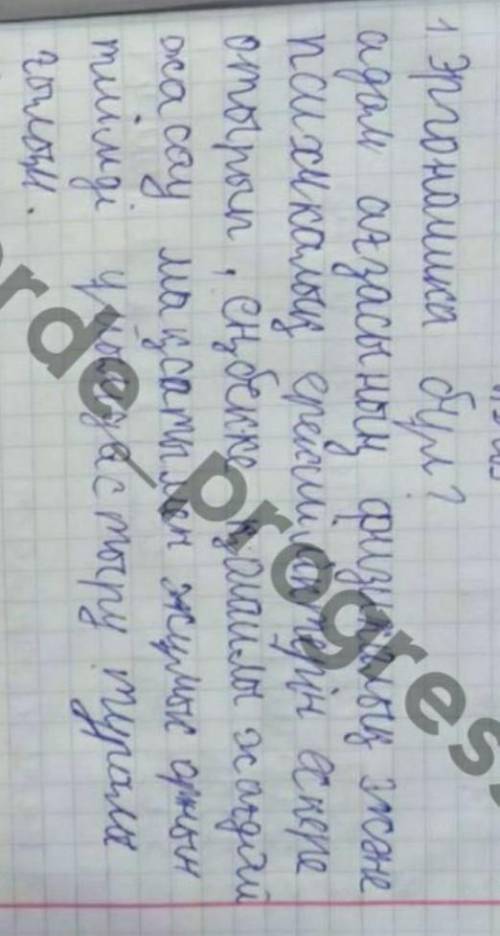 1. Эргономика бұл?
адам ағзасының физикалық және
психикалық ерекшіліктерін ескере
отырып, еңбекке қолайлы жағдай
жасау мақсатымен жұмыс орнын
тиімді ұйымдастыру туралы
ғылым.
rde_progress